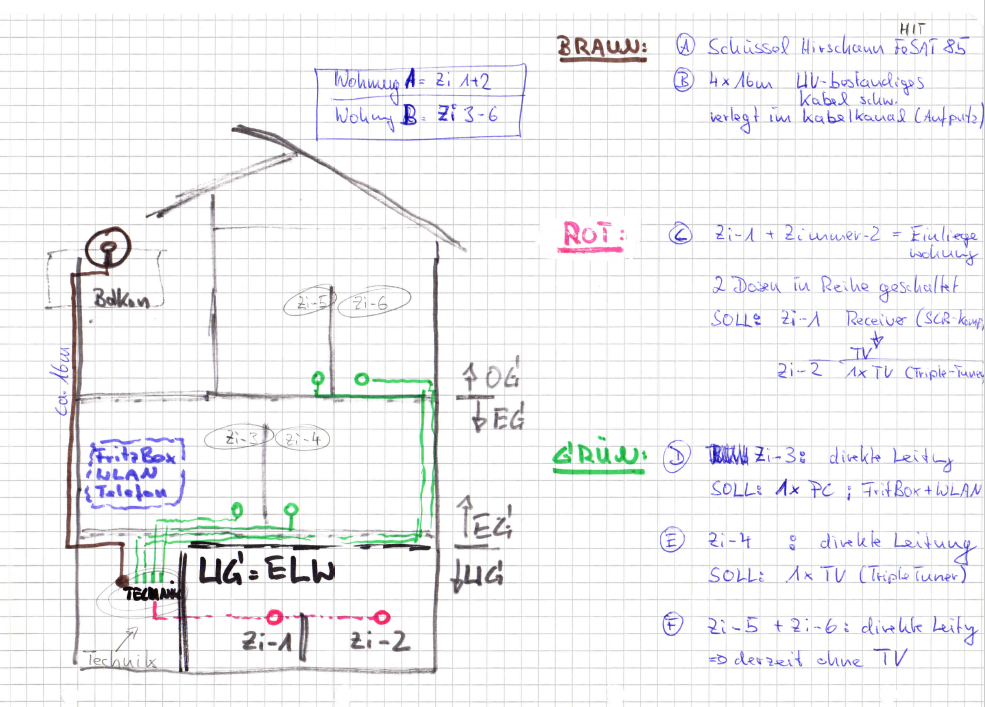 Wohnung A = Zi 1+2
Wohnung B = Zi 3-6
Balkon
ca. 16m
Zi-5 Zi-6
↑ OG
↓ EG
Zi-3 Zi-4
FritzBox
WLAN
Telefon
↑ EG
↓ UG
UG = ELW
TECHNIK
Technik
Zi-1 Zi-2
BRAUN: A Schüssel Hirschann FeSAT 85
HIT
B 4x16m UV-beständiges
Kabel schw.
verlegt im Kabelkanal (Aufputz)
ROT: C Zi-1 + Zimmer-2 = Einliege
wohnung
2 Dosen in Reihe geschaltet
SOLL: Zi-1 Receiver (SCR-komp.
TV
Zi-2 1x TV (Triple-Tuner
GRÜN: D Zi-3: direkte Leitung
SOLL: 1x PC ; FritBox+WLAN
E Zi-4 : direkte Leitung
SOLL: 1x TV (Triple Tuner)
F Zi-5 + Zi-6: direkte Leitg
=> derzeit ohne TV